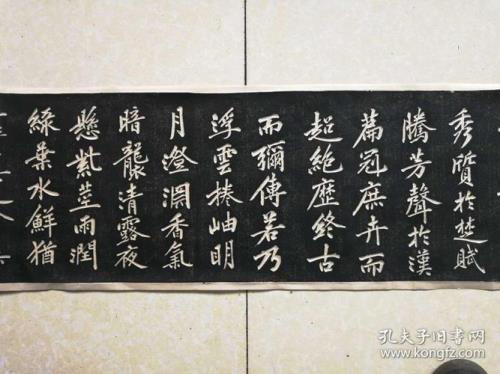 秀質於楚賦
騰芳聲於漢
篇冠庶卉而
超絕歷終古
而彌傳若乃
浮雲捲岫明
月澄瀾香氣
暗襲清露夜
懸紫莖雨潤
綠葉水鮮猶
孔夫子旧书网
www.kongfz.com